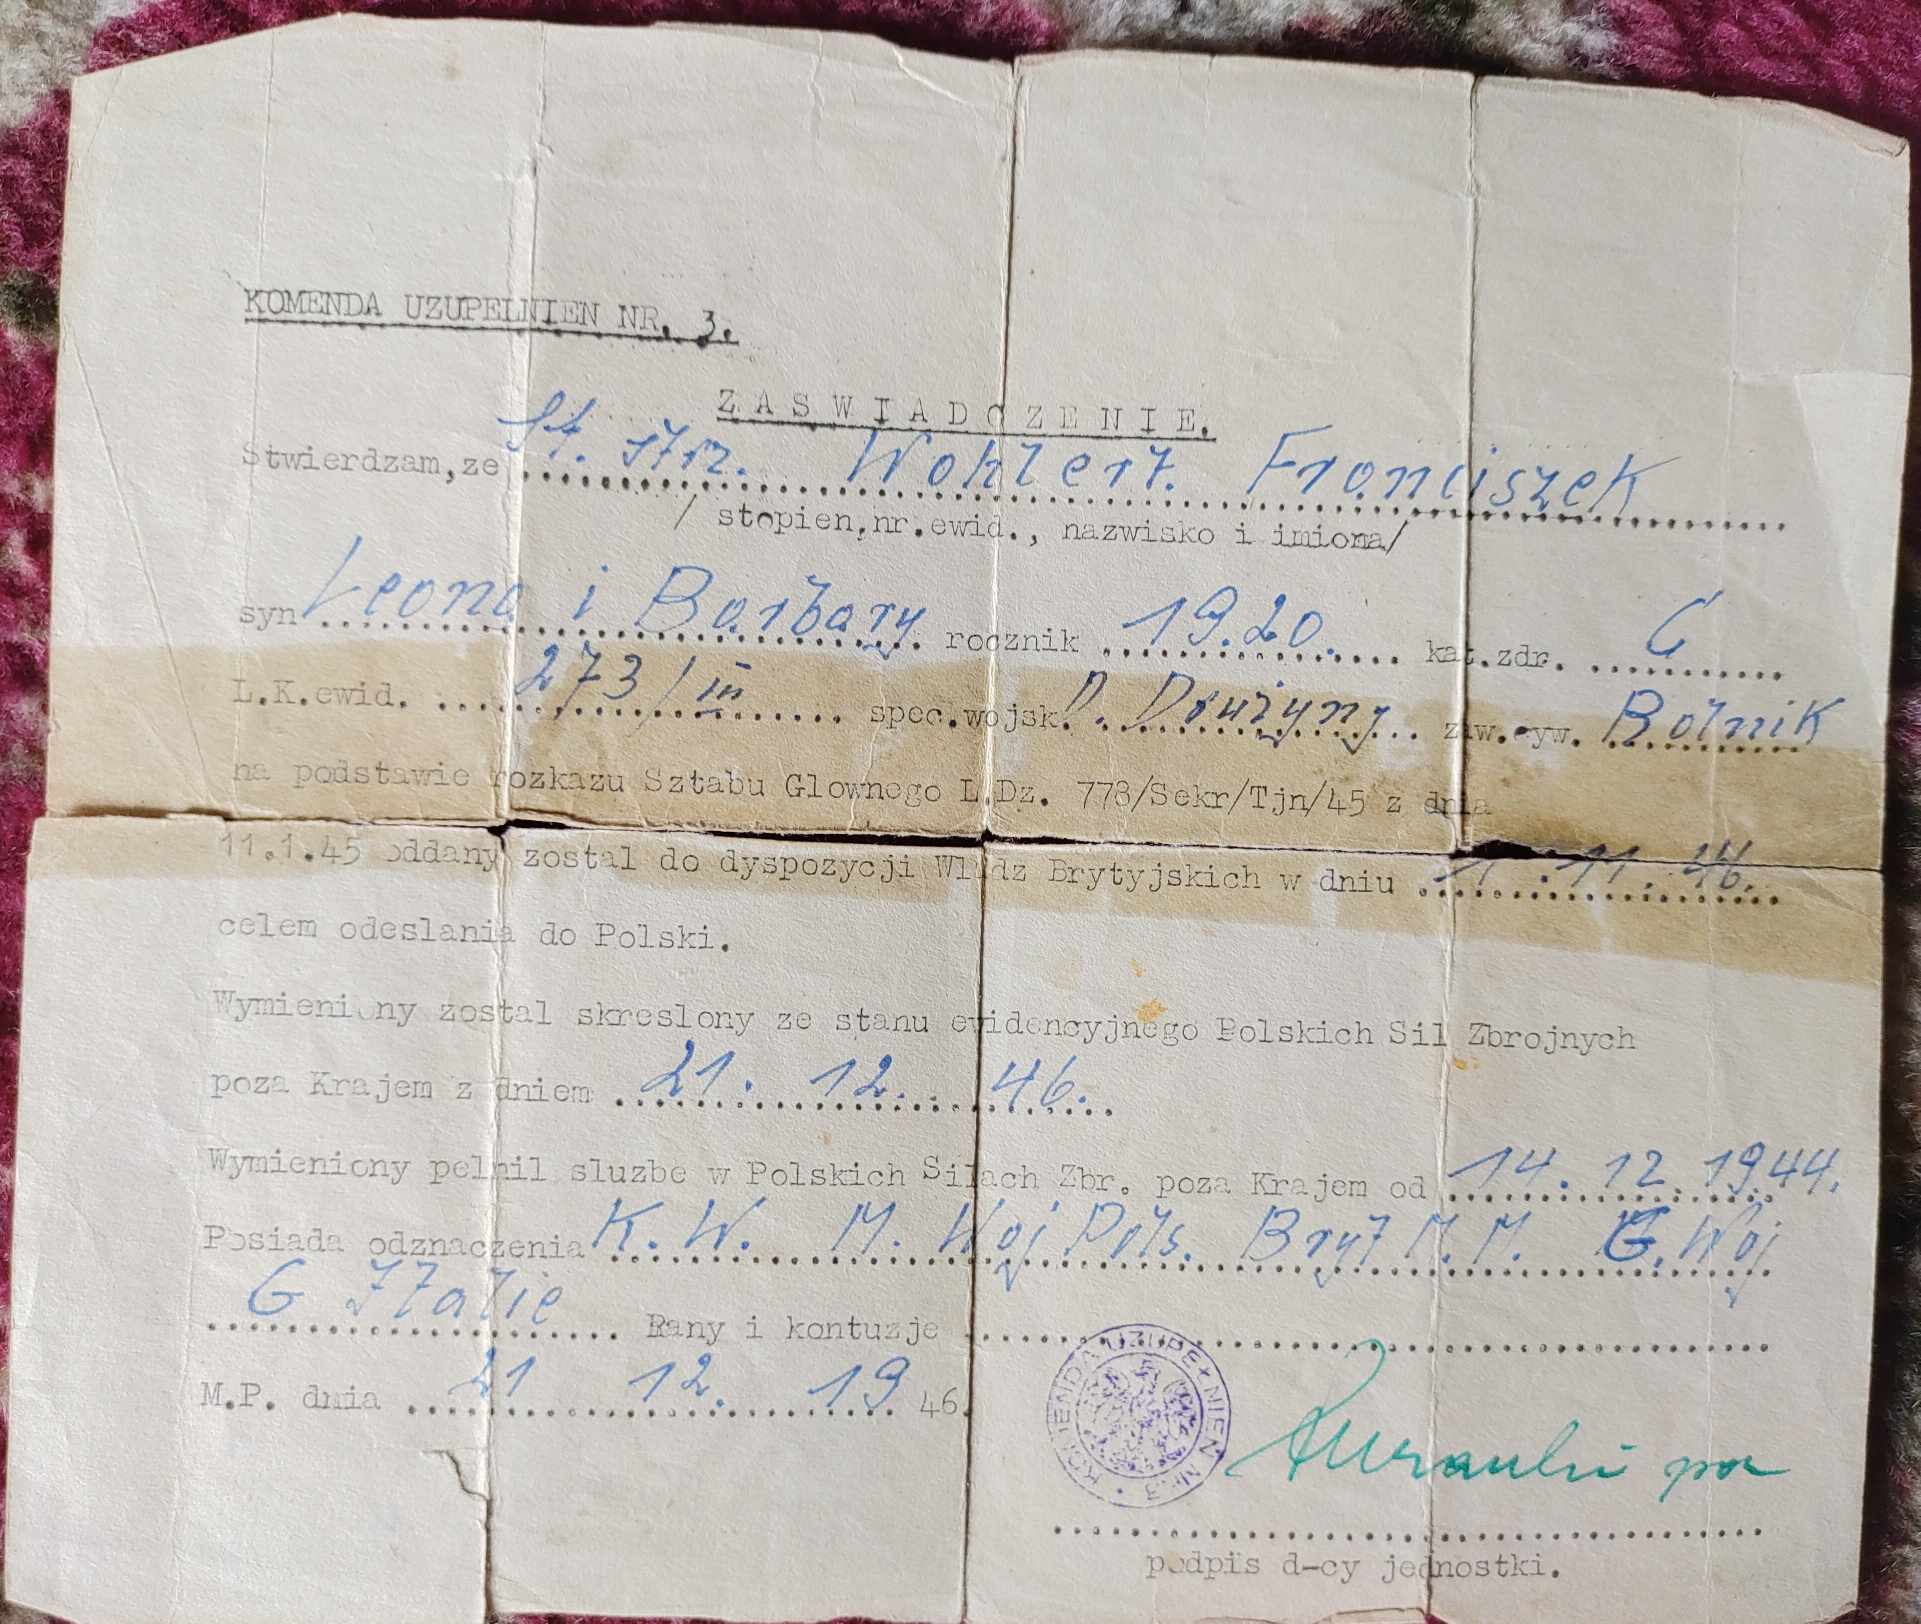 KOMENDA UZUPELNIEN NR. 3.
ZASWIADCZENIE.
Stwierdzam,ze St. strz. Wohlert. Franciszek
/ stopien,nr.ewid., nazwisko i imiona/
syn Leona i Barbary rocznik 19.20. kat.zdr. C
L.K.ewid. 273/III spec.wojsk. D. Drużyny zaw.cyw. Rolnik
na podstawie rozkazu Sztabu Glownego L.Dz. 778/Sekr/Tjn/45 z dnia
11.1.45 oddany zostal do dyspozycji Wladz Brytyjskich w dniu 1.11.46.
celem odeslania do Polski.
Wymieniony zostal skreslony ze stanu ewidencyjnego Polskich Sil Zbrojnych
poza Krajem z dniem 21. 12. 46.
Wymieniony pelnil sluzbe w Polskich Silach Zbr. poza Krajem od 14. 12. 1944.
Posiada odznaczenia K. W. M. Woj Pols. Bryt M. M. G. Woj
G Italie Rany i kontuzje
M.P. dnia 21 12. 19 46.
KOMENDA UZUPEŁNIEŃ Nr 3
podpis d-cy jednostki.